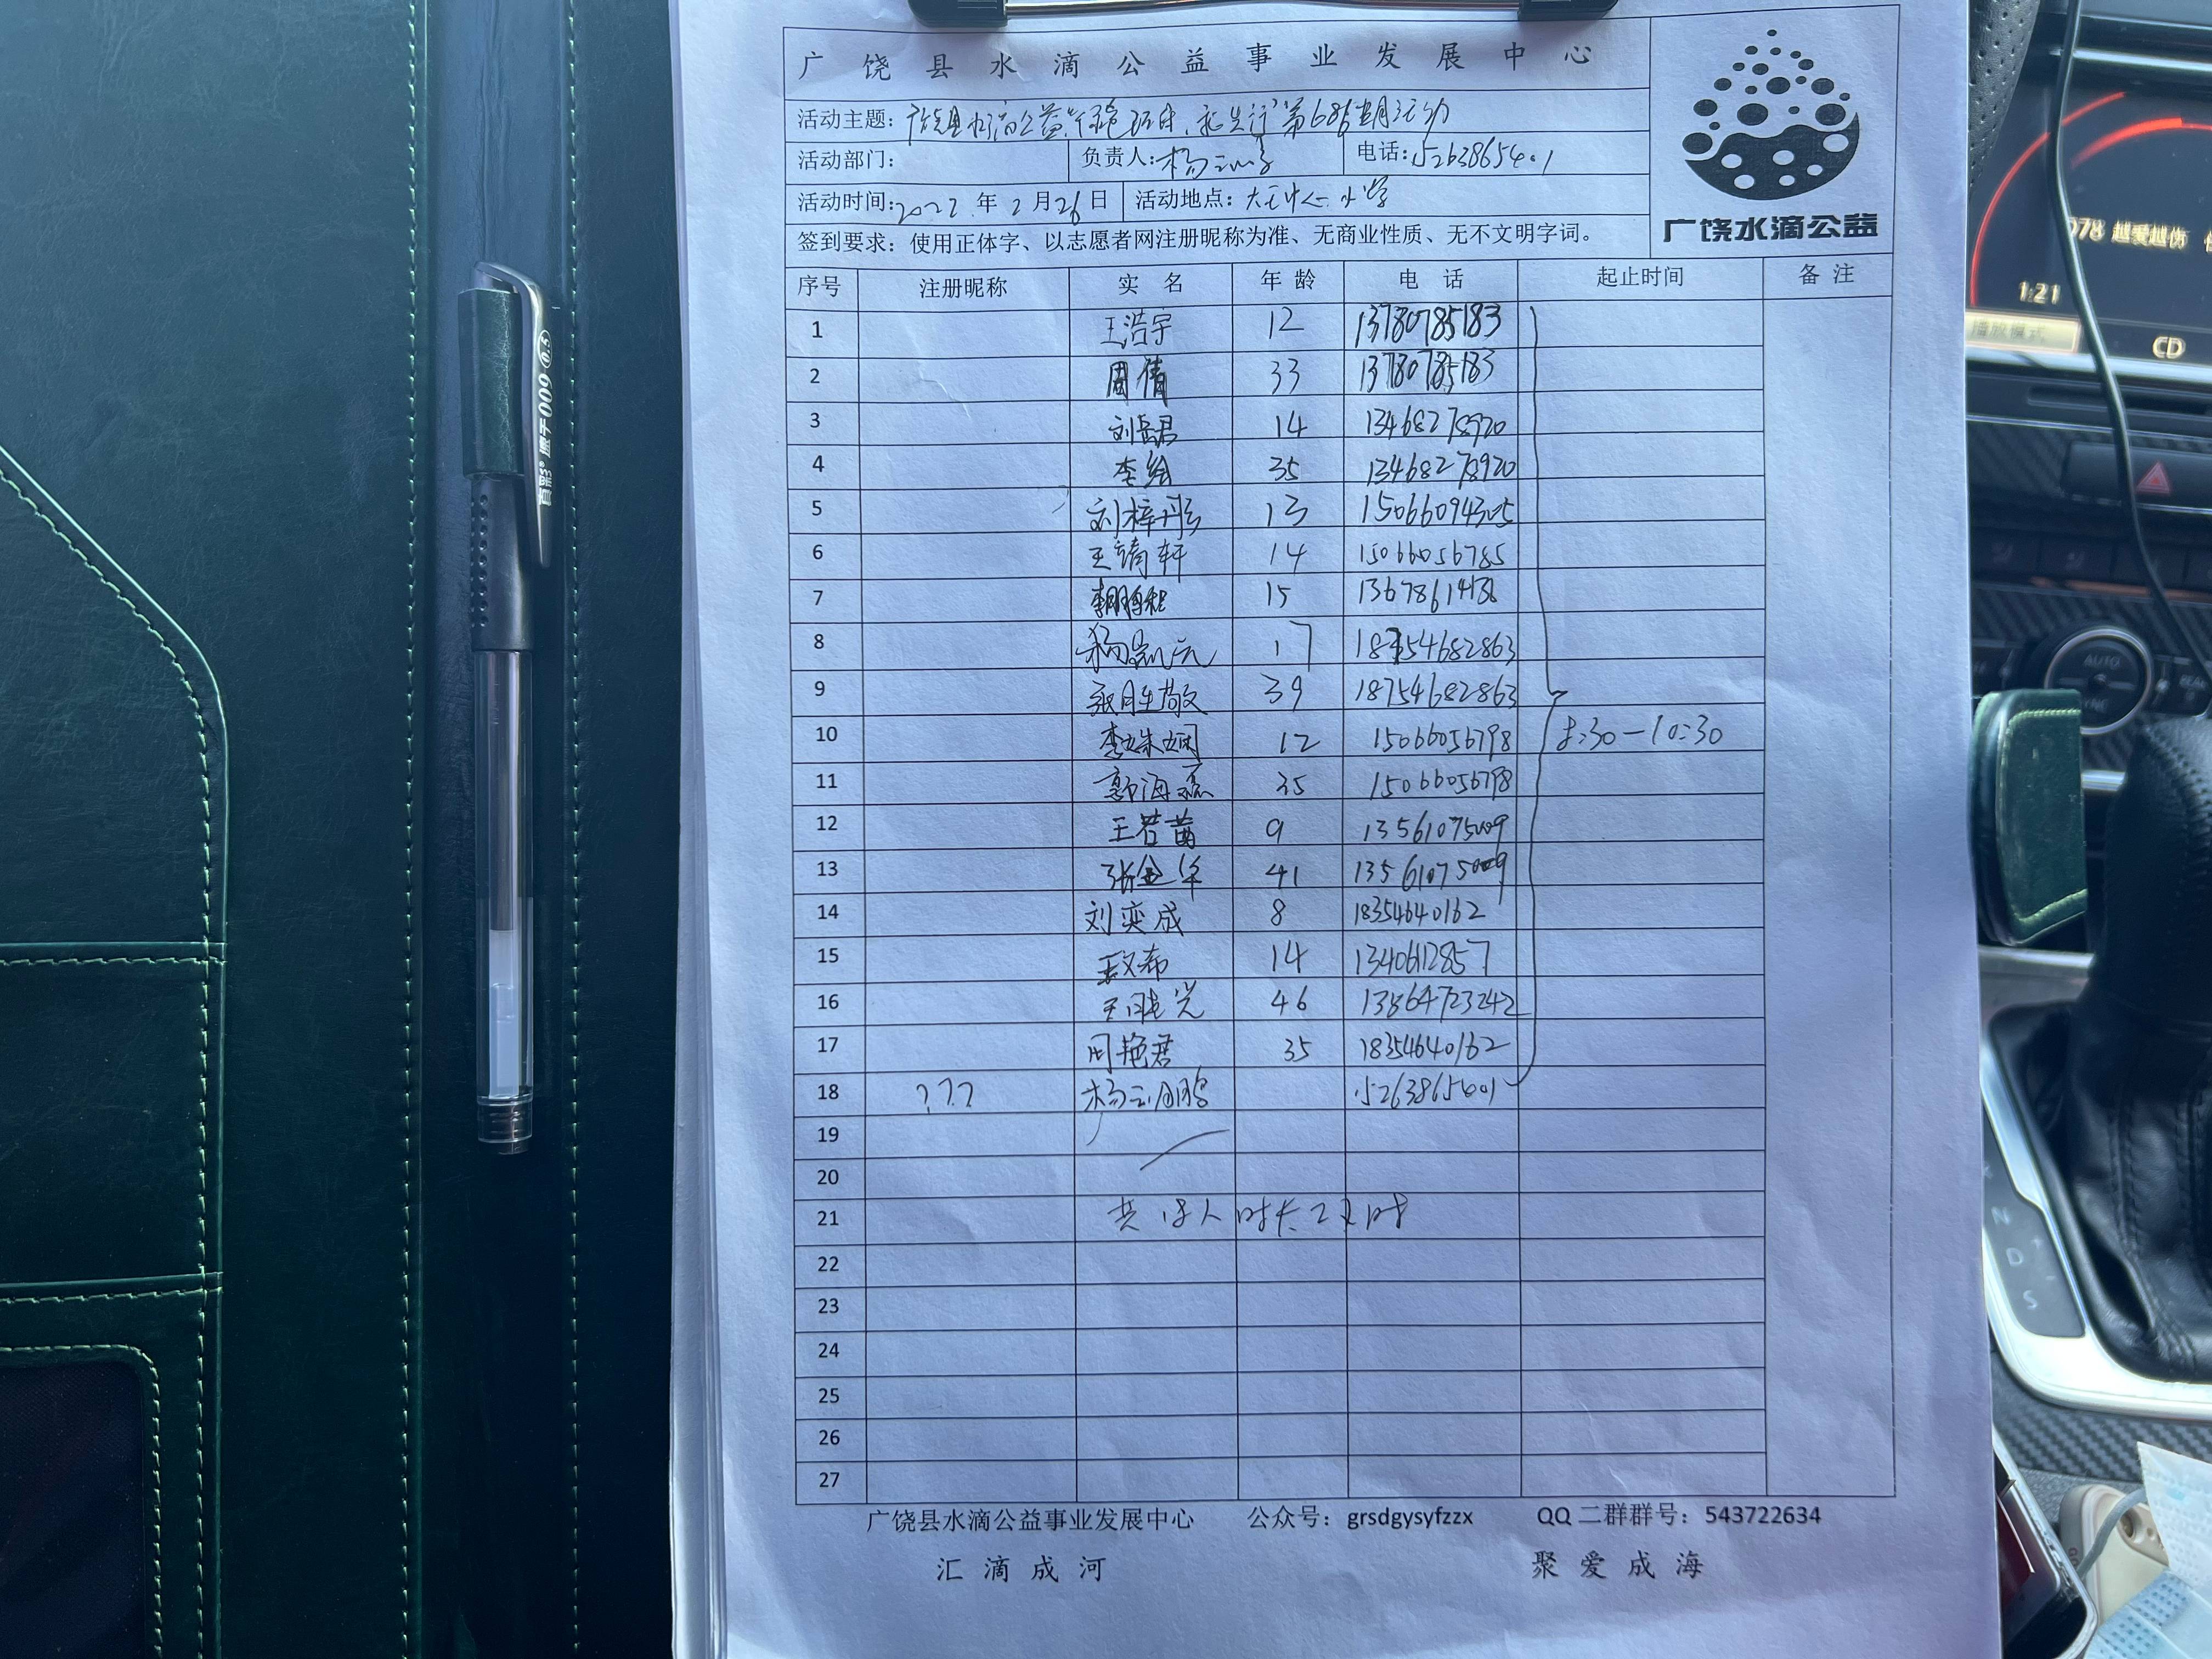 广饶县水滴公益事业发展中心
活动主题: 广饶县水滴公益 第686期活动
活动部门: 负责人: 杨云鹏 电话: 15263865401
活动时间: 2022年2月26日 活动地点: 大王中心小学
签到要求：使用正体字、以志愿者网注册昵称为准、无商业性质、无不文明字词。
广饶水滴公益
序号 注册昵称 实名 年龄 电话 起止时间 备注
1 王浩宇 12 13780785183
2 周倩 33 13780785183
3 刘岳君 14 13468278920
4 李绘 35 13468278920
5 刘梓彤 13 15066094305
6 王靖轩 14 15066056785
7 15
8 17 18754682863
9 39 18754682863
10 12 15066056798 8:30-10:30
11 郭海燕 35 15066056798
12 王若茜 9 13561075009
13 张金华 41 13561075009
14 刘奕成 8 18354640162
15 14 13406112857
16 46 13864723242
17 周艳君 35 18354640162
18 ??? 杨云鹏 15263865401
19
20
21 共18人 时长2小时
22
23
24
25
26
27
广饶县水滴公益事业发展中心 公众号：grsdgysyfzzx QQ二群群号：543722634
汇滴成河 聚爱成海
百乐 009 0.5
078 越爱越伤
1:21
播放模式
CD
AUTO
REAR
SYNC
N
D
S